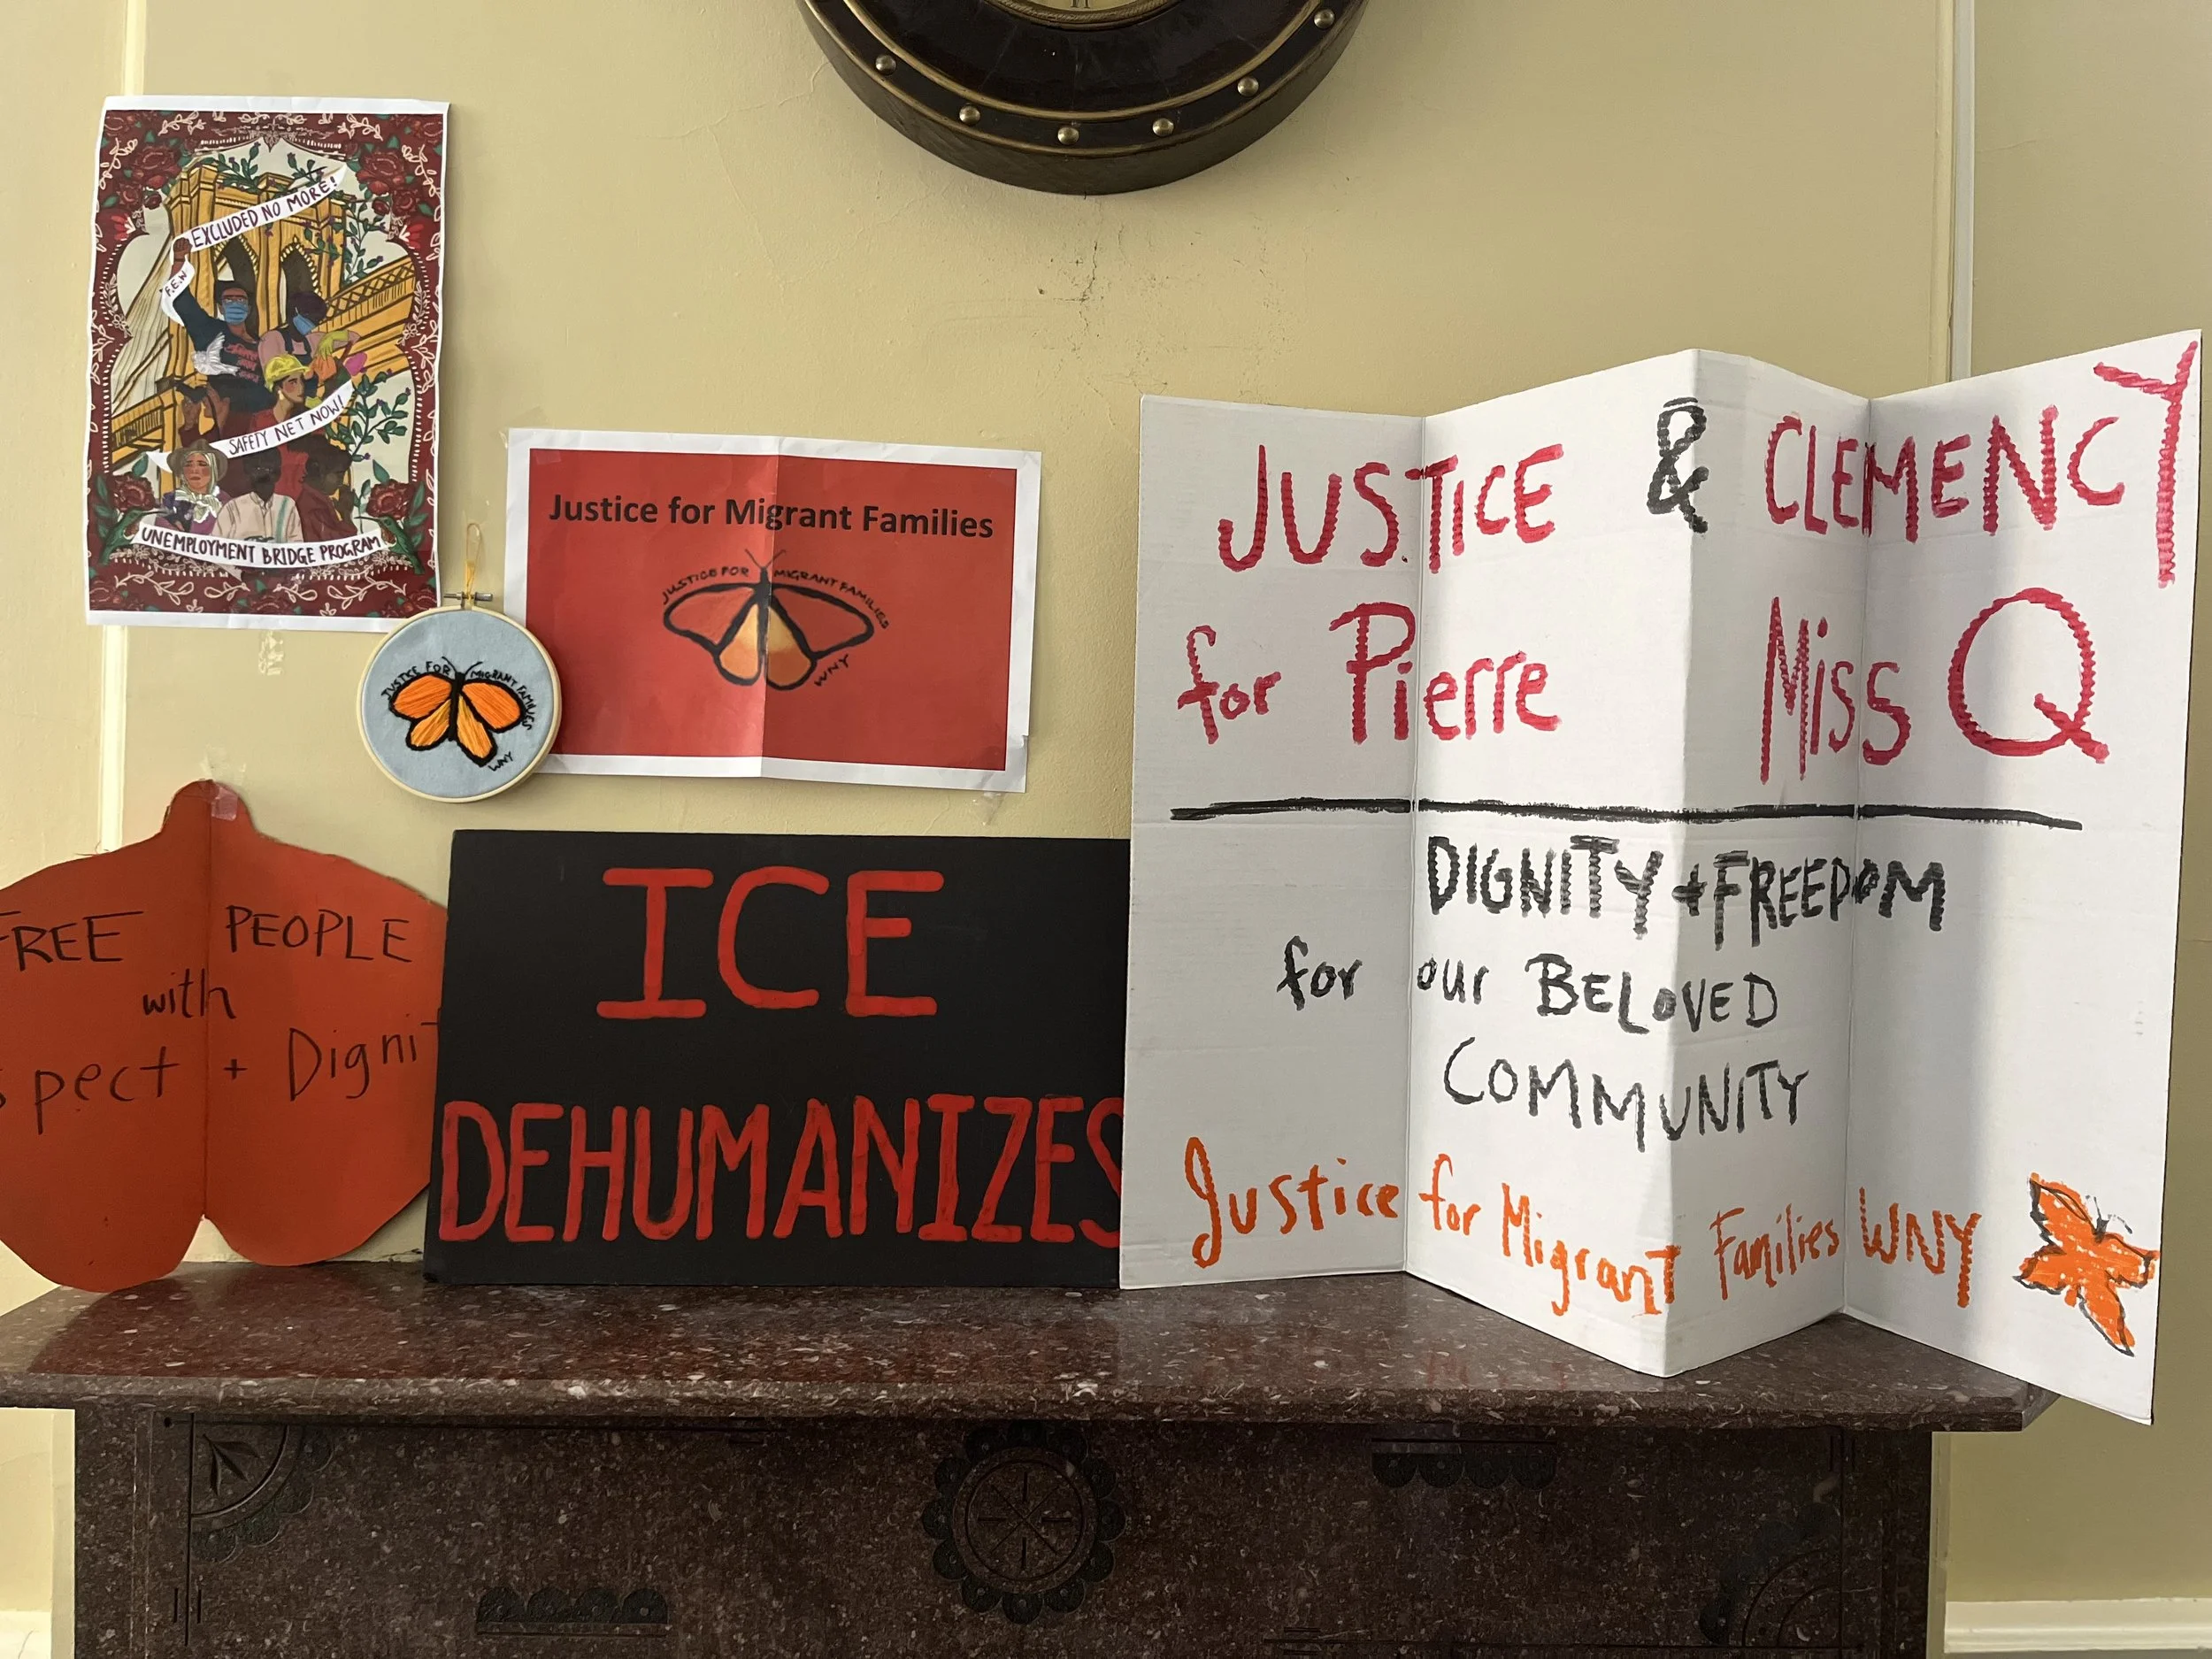 EXCLUDED NO MORE!
F.E.W
SAFETY NET NOW!
UNEMPLOYMENT BRIDGE PROGRAM
Justice for Migrant Families
JUSTICE FOR MIGRANT FAMILIES
WNY
JUSTICE FOR MIGRANT FAMILIES
WNY
FREE PEOPLE
with
spect + Digni
ICE
DEHUMANIZES
JUSTICE & CLEMENCY
for Pierre Miss Q
DIGNITY + FREEDOM
for our BELOVED
COMMUNITY
Justice for Migrant Families WNY